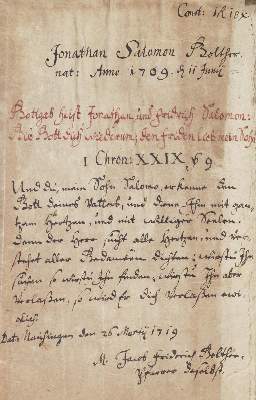 Jonathan Salomon Bolther
nat: Anno 1709. d 11 Junij
Gottgeb heist Jonathan und Fridrich Salomon:
Gott dich wiederum; den frieden lieb mein Sohn
1 Chron: XXIX, v 9
Und du, mein Sohn Salomo, erkenne den
Gott deines Vatters, und diene Ihm mit gan-
tzem Hertzen, und mit williger Seelen.
Denn der Herr sucht alle Hertzen, und ver-
stehet aller Gedancken Dichten; wirstu Ihn
suchen, so wirstu Ihn finden, wirstu Ihn aber
verlassen, so wird er dich verlassen ewi-
glich.
Dat. den 26 Martij 1719
M. Jacob Friderich Bolther
Pfarrer daselbst.